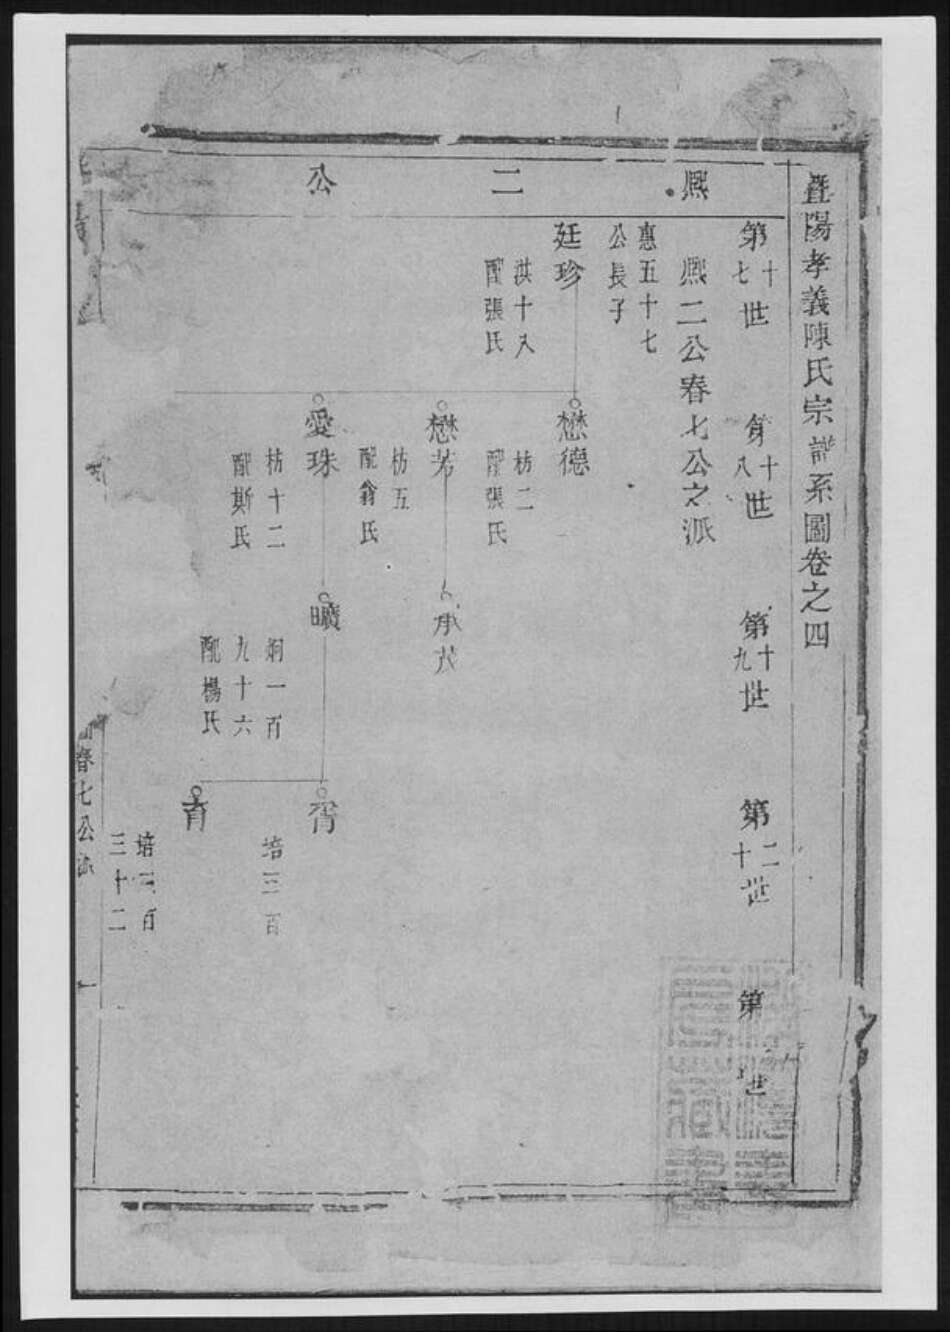 暨陽孝義陳氏宗譜系圖卷之四
熈二公
第十七世
第十八世
第十九世
第二十世
第
世
熈二公春七公之派
惠五十七
公長子
廷珍
洪十八
配張氏
懋德
枋二
配張氏
懋芳
枋五
配翁氏
承茂
愛珠
枋十二
配斯氏
曠
炯一百
九十六
配楊氏
胥
培三百
育
培三百
三十二
春七公派